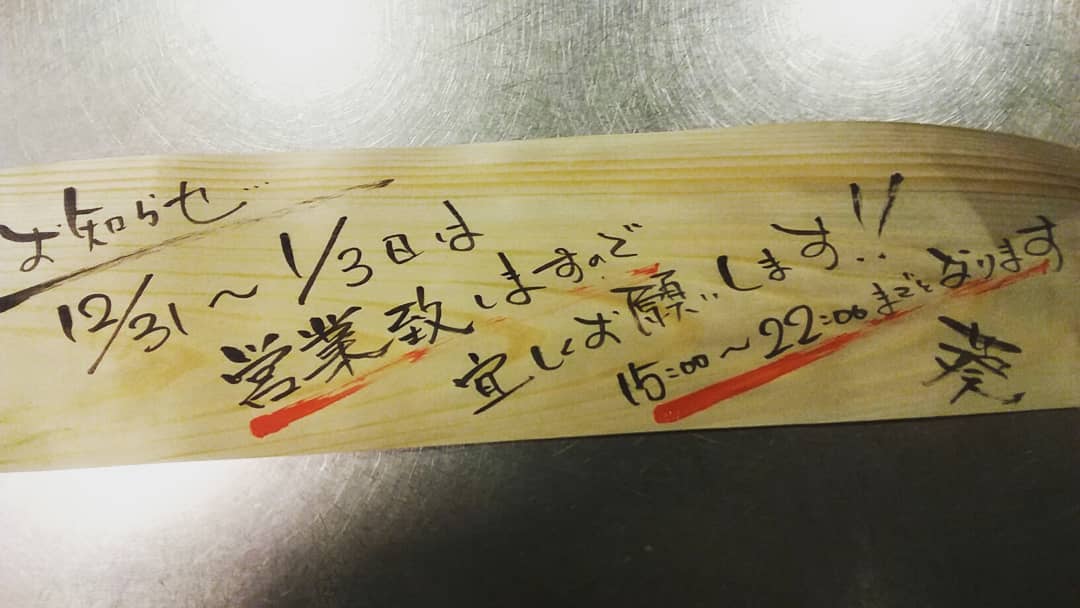 お知らせ…
12/31〜1/3日は
営業致しますので
宜しくお願いします!!
15:00〜22:00までとなります
葵